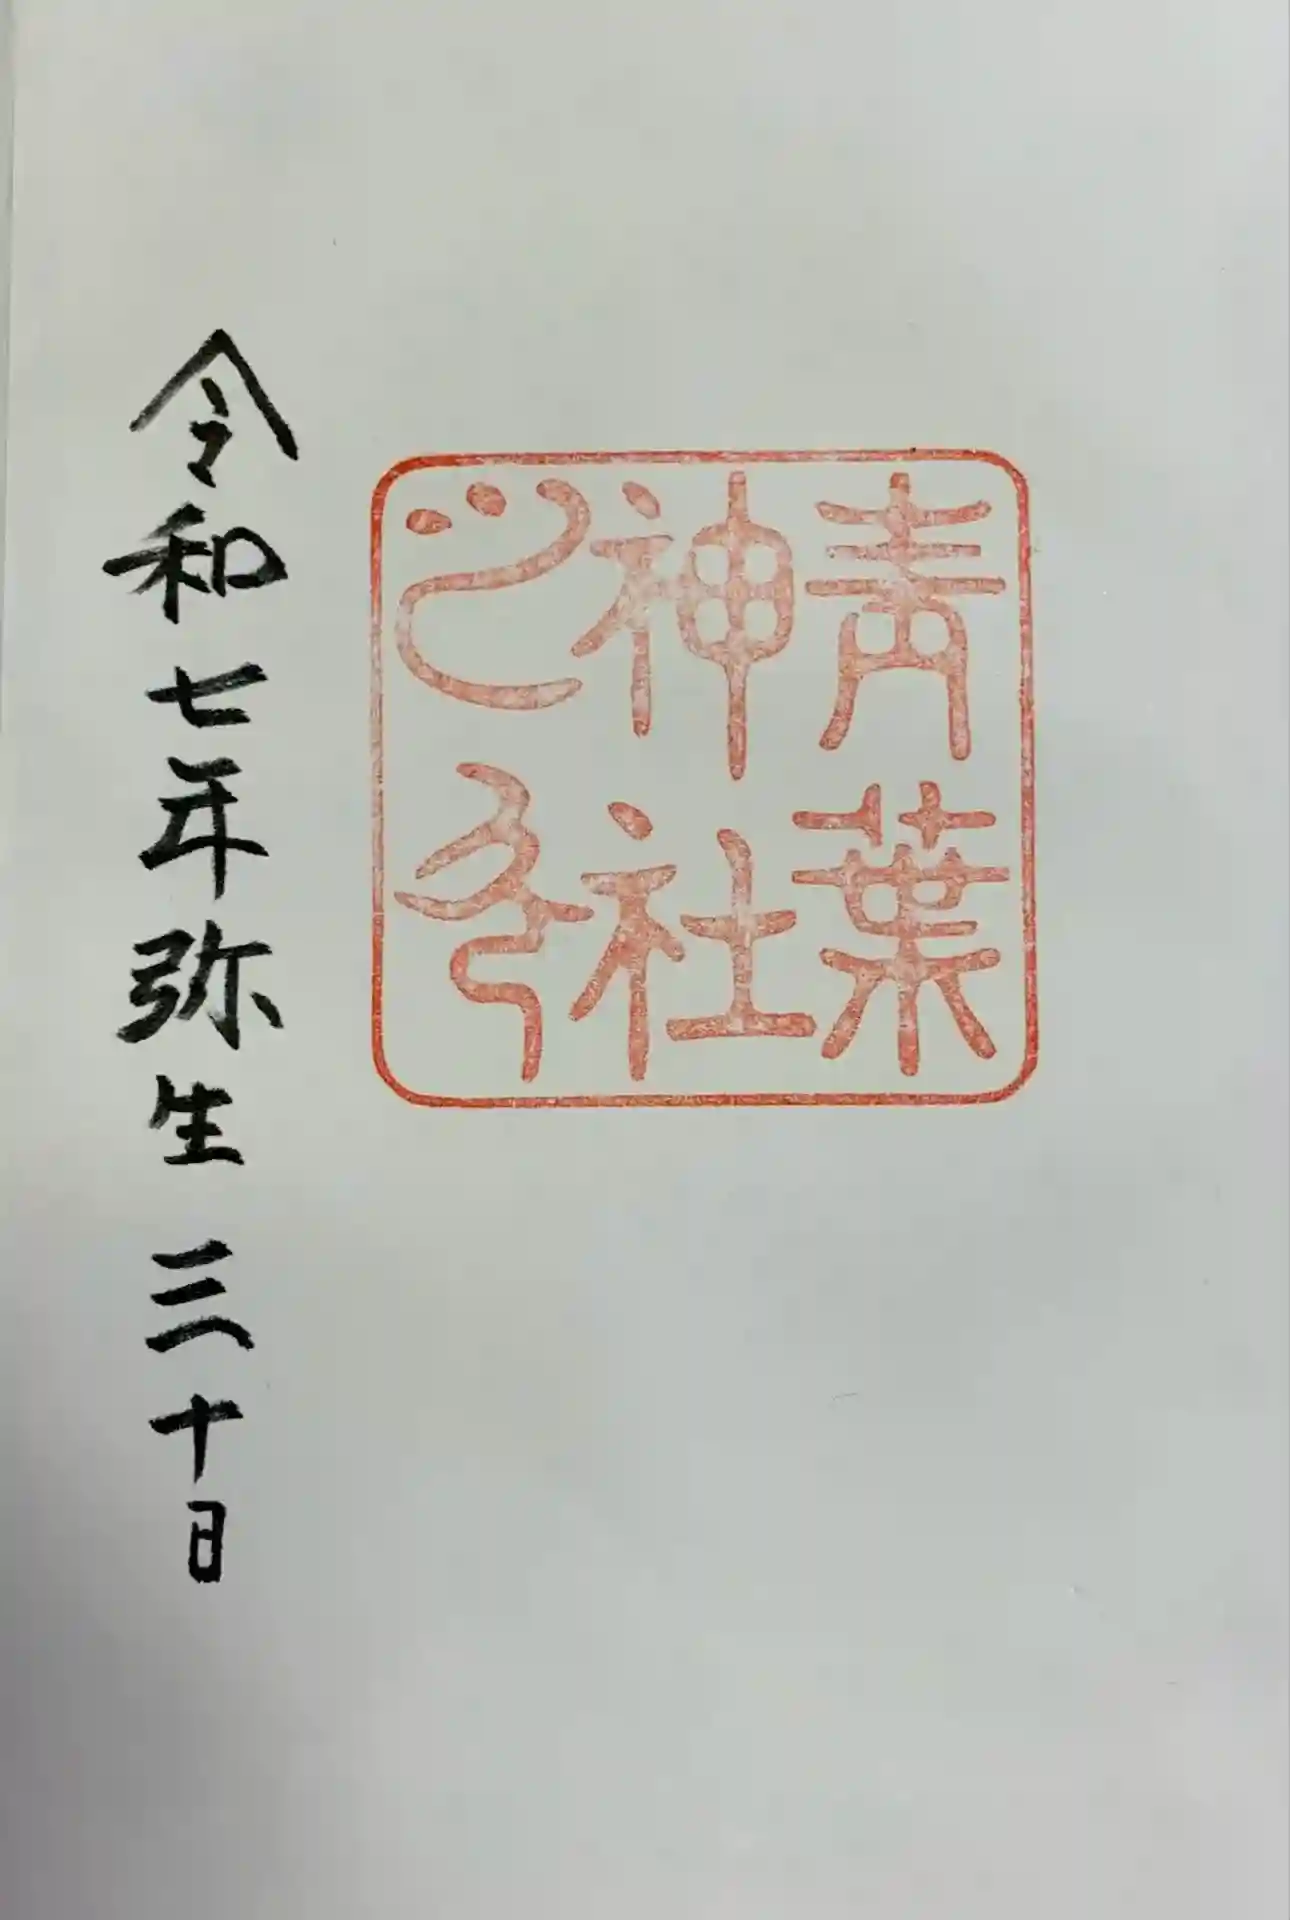 青葉
神社
之印
令和七年弥生三十日